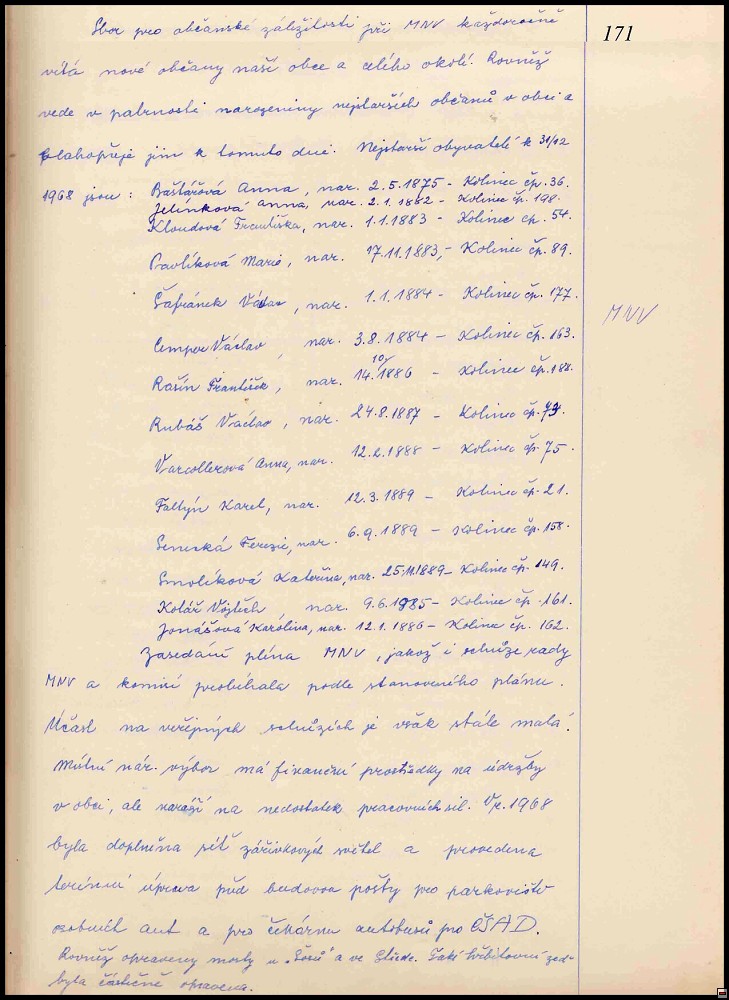 Sbor pro občanské záležitosti při MNV každoročně
171
vítá nové občany naší obce a celého okolí. Rovněž
vede v patrnosti narozeniny nejstarších občanů v obci a
blahopřeje jim k tomuto dni. Nejstarší obyvatelé k 31/12
1968 jsou : Baštářová Anna, nar. 2.5.1875 - Kolinec čp. 36.
Jelínková Anna, nar. 2.1.1882 - Kolinec čp. 198.
Kloudová Františka, nar. 1.1.1883 - Kolinec čp. 54.
Pavlíková Marie, nar. 17.11.1883, - Kolinec čp. 89.
Šafránek Václav, nar. 1.1.1884 - Kolinec čp. 177.
MNV
Cemper Václav, nar. 3.8.1884 - Kolinec čp. 163.
Rašín František, nar. 14.10/1886 - Kolinec čp.
Rubáš Václav, nar. 24.8.1887 - Kolinec čp.
Anna, nar. 12.2.1888 - Kolinec čp. 75.
Faltýn Karel, nar. 12.3.1889 - Kolinec čp. 21.
Terezie, nar. 6.9.1889 - Kolinec čp. 158.
Smolíková Kateřina, nar. 25.11.1889 - Kolinec čp. 149.
Kolář Vojtěch, nar. 9.6.1885 - Kolinec čp. 161.
Jonášová Karolina, nar. 12.1.1886 - Kolinec čp. 162.
Zasedání pléna MNV, jakož i schůze rady
MNV a komisí probíhala podle stanoveného plánu.
Účast na veřejných schůzích je však stále malá.
Místní nár. výbor má finanční prostředky na údržby
v obci, ale naráží na nedostatek pracovních sil. V r. 1968
byla doplněna síť zářivkových světel a provedena
terénní úprava před budovou pošty pro parkoviště
osobních aut a pro čekárnu autobusů pro ČSAD.
Rovněž opraveny mosty u a ve Také hřbitovní zeď
byla částečně opravena.